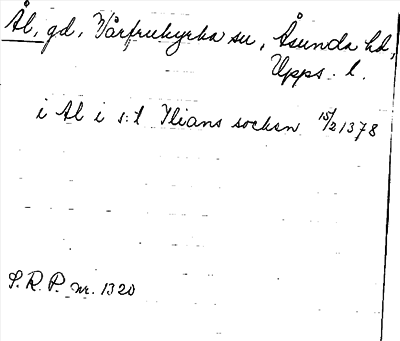 Ål, gd, Vårfrukyrka sn, Åsunda hd,
Upps. l.
i Al i s:t Ilians socksn 15/2 1378
S.R.P. nr. 1320